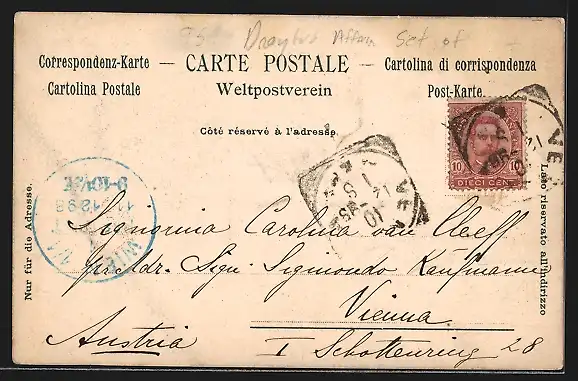 Dreyfus Affair Set of
Correspondenz-Karte — CARTE POSTALE — Cartolina di corrispondenza
Cartolina Postale Weltpostverein Post-Karte.
Côté réservé à l'adresse.
10 10
DIECI CEN
Nur für die Adresse.
Lato riservato all'indirizzo
Signorina Carolina van Cleeff
per Adr. Sign. Sigmondo Kaufmann
Vienna
Austria I Schottenring 28